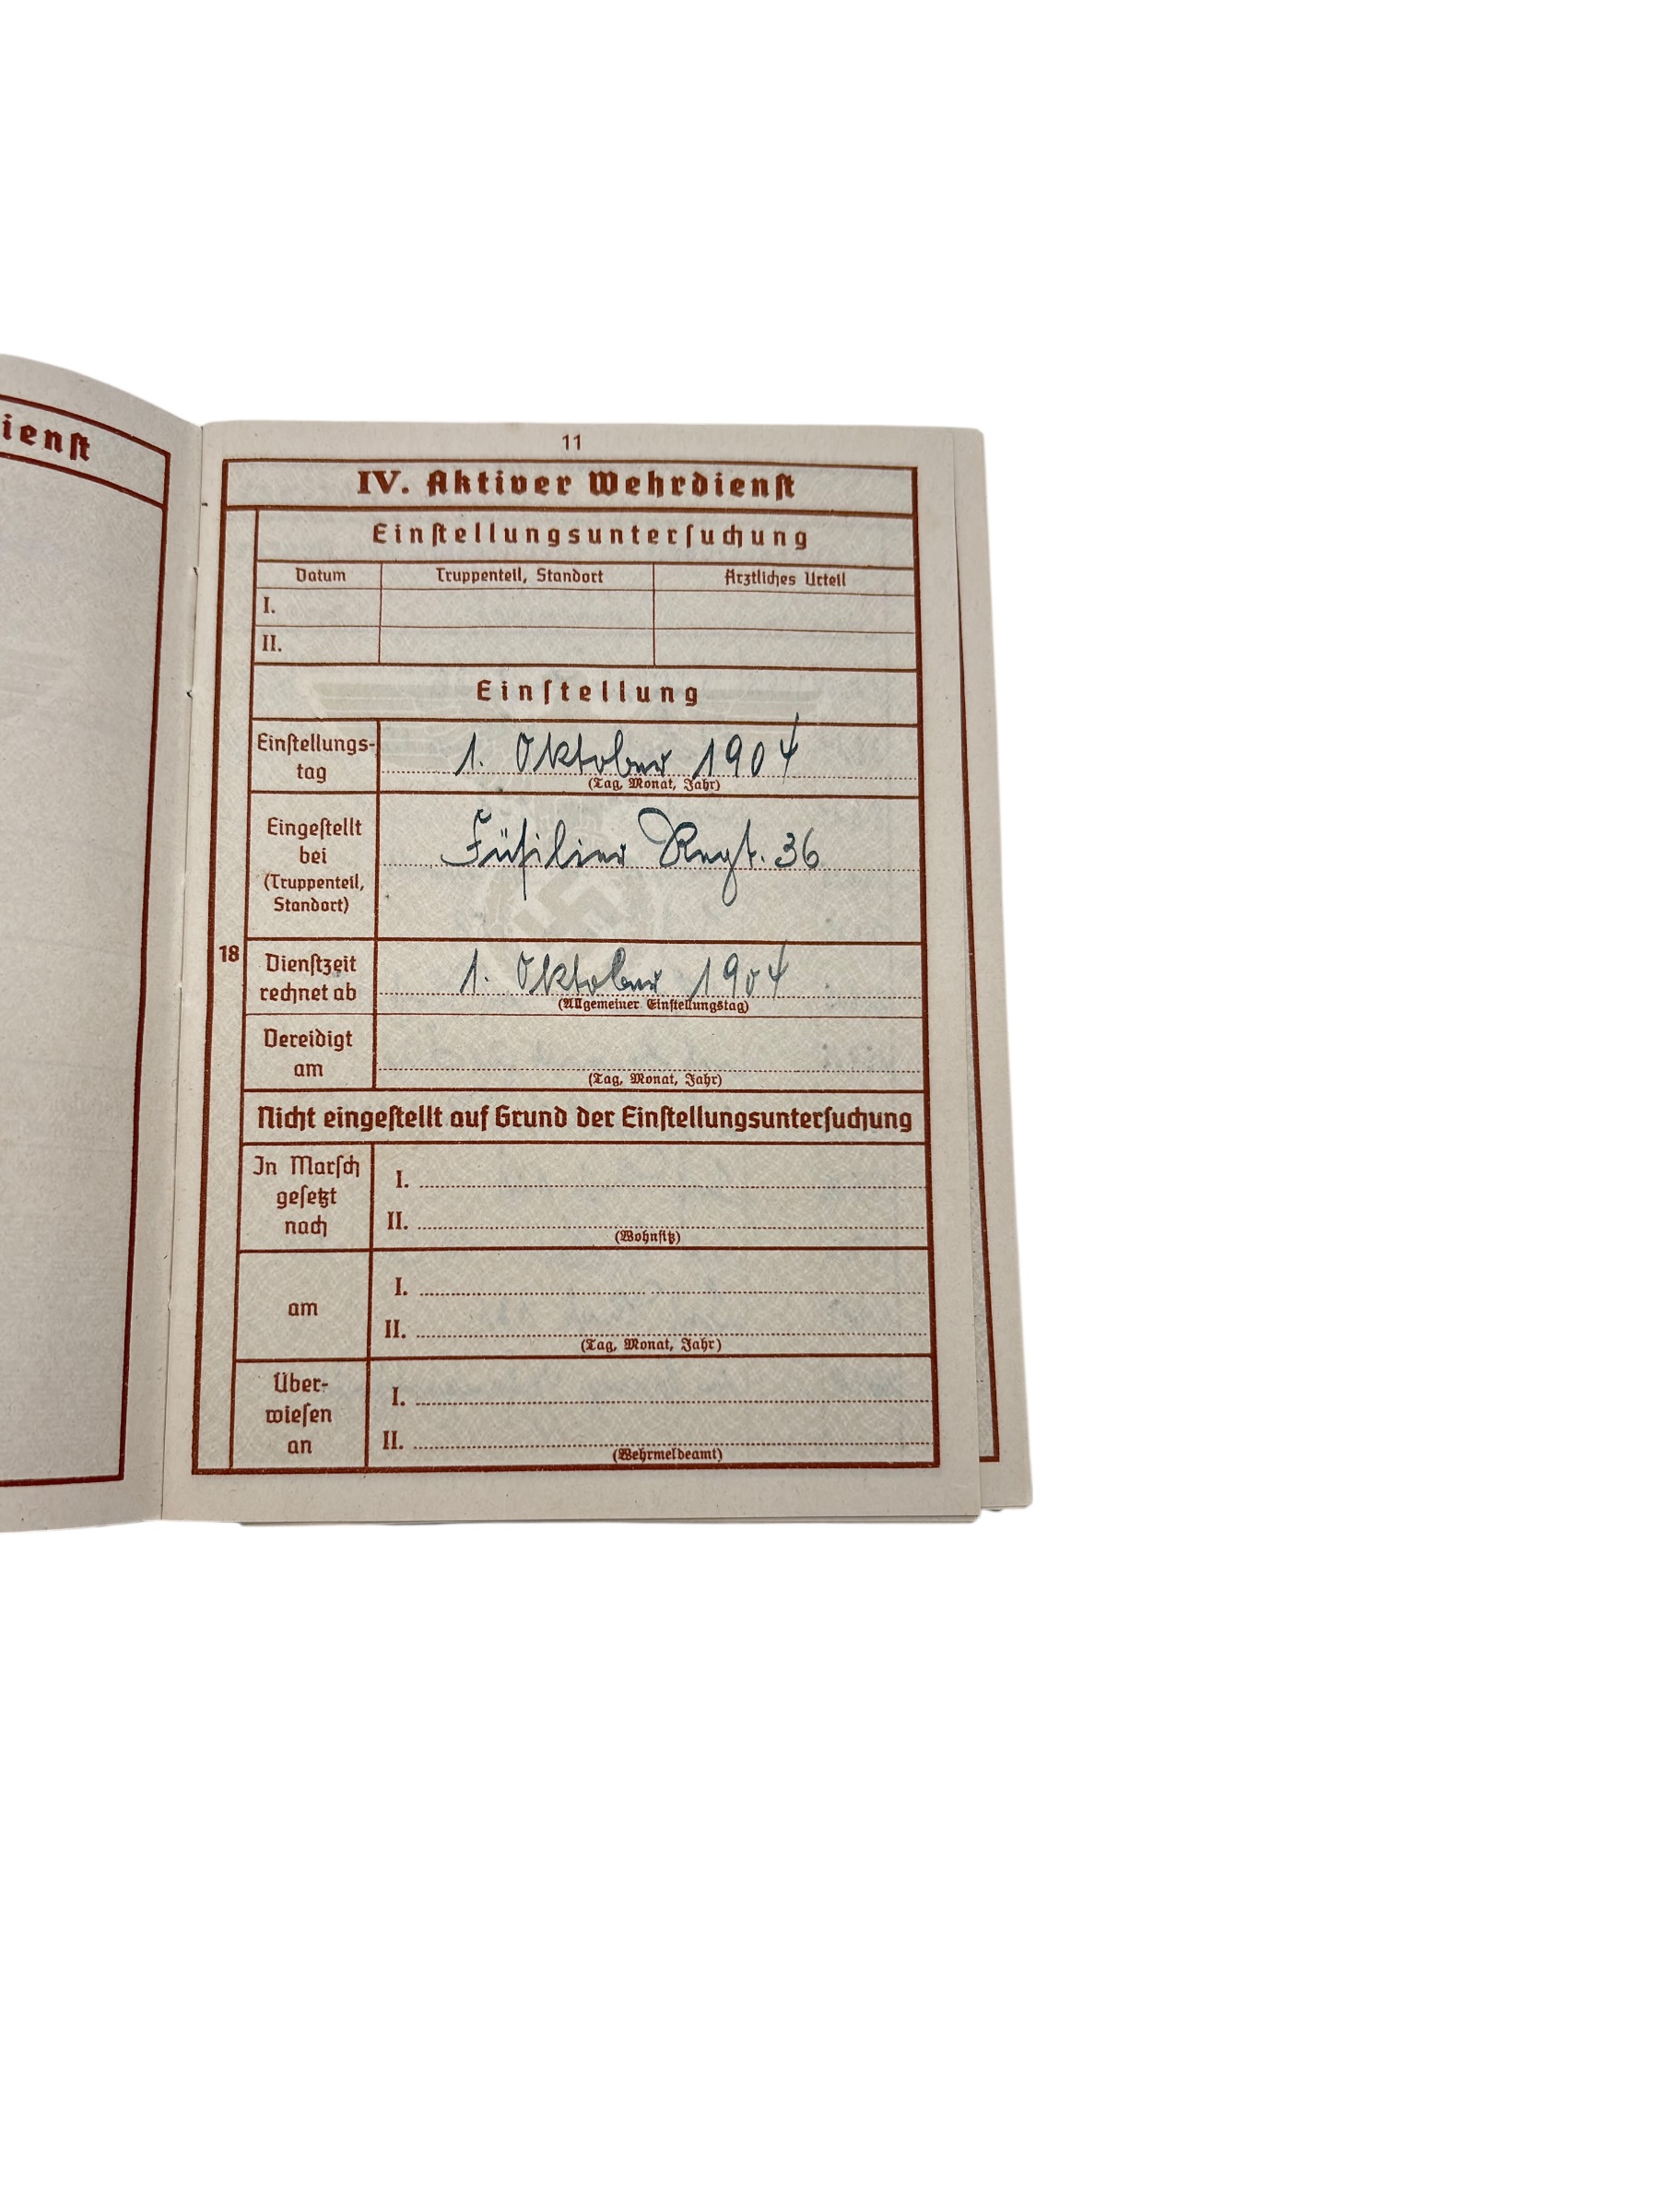 ienst
11
IV. Aktiver Wehrdienst
Einstellungsuntersuchung
Datum Truppenteil, Standort Ärztliches Urteil
I.
II.
Einstellung
Einstellungs-
tag
1. Oktober 1904
(Tag, Monat, Jahr)
Eingestellt
bei
(Truppenteil,
Standort)
Füsilier Regt. 36
18
Dienstzeit
rechnet ab
1. Oktober 1904
(Allgemeiner Einstellungstag)
Vereidigt
am
(Tag, Monat, Jahr)
Nicht eingestellt auf Grund der Einstellungsuntersuchung
In Marsch
gesetzt
nach
I.
II.
(Wohnsitz)
am
I.
II.
(Tag, Monat, Jahr)
Über-
wiesen
an
I.
II.
(Wehrmeldeamt)